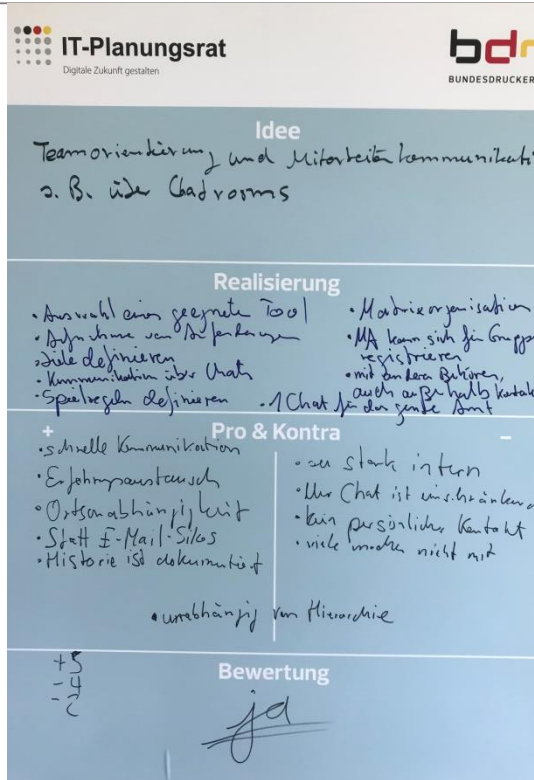 IT-Planungsrat
Digitale Zukunft gestalten
bdr
BUNDESDRUCKER
Idee
Teamorientierung und Mitarbeiterkommunikati
z. B. über Chadrooms
Realisierung
• Auswahl eines geeignete Tool
• Aufnahme von Anforderungen
• Ziele definieren
• Kommunikation über Chats
• Spielregeln definieren
• Matrixorganisation
• MA kann sich für Gruppe
registrieren
• mit anderen Behören,
auch außerhalb Kontakt
• 1 Chat für das ganze Amt
Pro & Kontra
+
• schnelle Kommunikation
• Erfahrungsaustausch
• Ortsunabhängigkeit
• Statt E-Mail-Silos
• Historie ist dokumentiert
–
• zu stark intern
• Nur Chat ist einschränkend
• kein persönlicher Kontakt
• viele machen nicht mit
• unabhängig von Hierarchie
Bewertung
+5
-4
ja